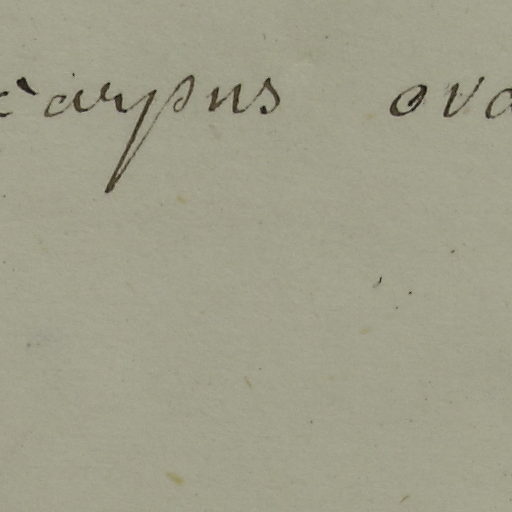 carpus ova